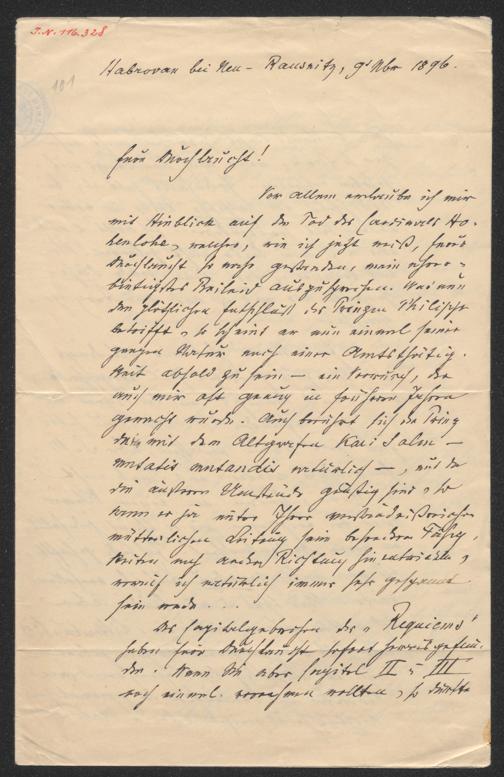 J.N. 116.328
101
Habrovan bei Neu-Rausnitz, 9t Nbr 1896.
Eure Durchlaucht!
Vor allem erlaube ich mir
mit Hinblick auf den Tod des Cardinals Ho-
henlohe, welcher, wie ich jetzt weiß, Eurer
Durchlaucht so nahe gestanden, mein ehrer-
bietigstes Beileid auszusprechen. Was nun
den plötzlichen Entschluß des Prinzen Philipp
betrifft, so scheint er nun einmal seiner
ganzen Natur nach einer Amtsthätig-
keit abhold zu sein — ein Vorwurf, der
auch mir oft genug in früheren Jahren
gemacht wurde. Auch berührt sich der Prinz
da mit dem Altgrafen Karl Salm —
mutatis mutandis natürlich —, und da
die äußeren Umstände günstig sind, so
kann er ja unter Ihrer verständnißreichen
mütterlichen Leitung seine besonderen Fähig-
keiten nach anderer Richtung hin entwickeln,
worauf ich natürlich immer sehr gespannt
sein werde....
Das Capitalgebrechen des "Requiems"
haben Eure Durchlaucht sofort herausgefun-
den. Wenn Sie aber Capitel II u III
noch einmal vornehmen wollten, so dürfte